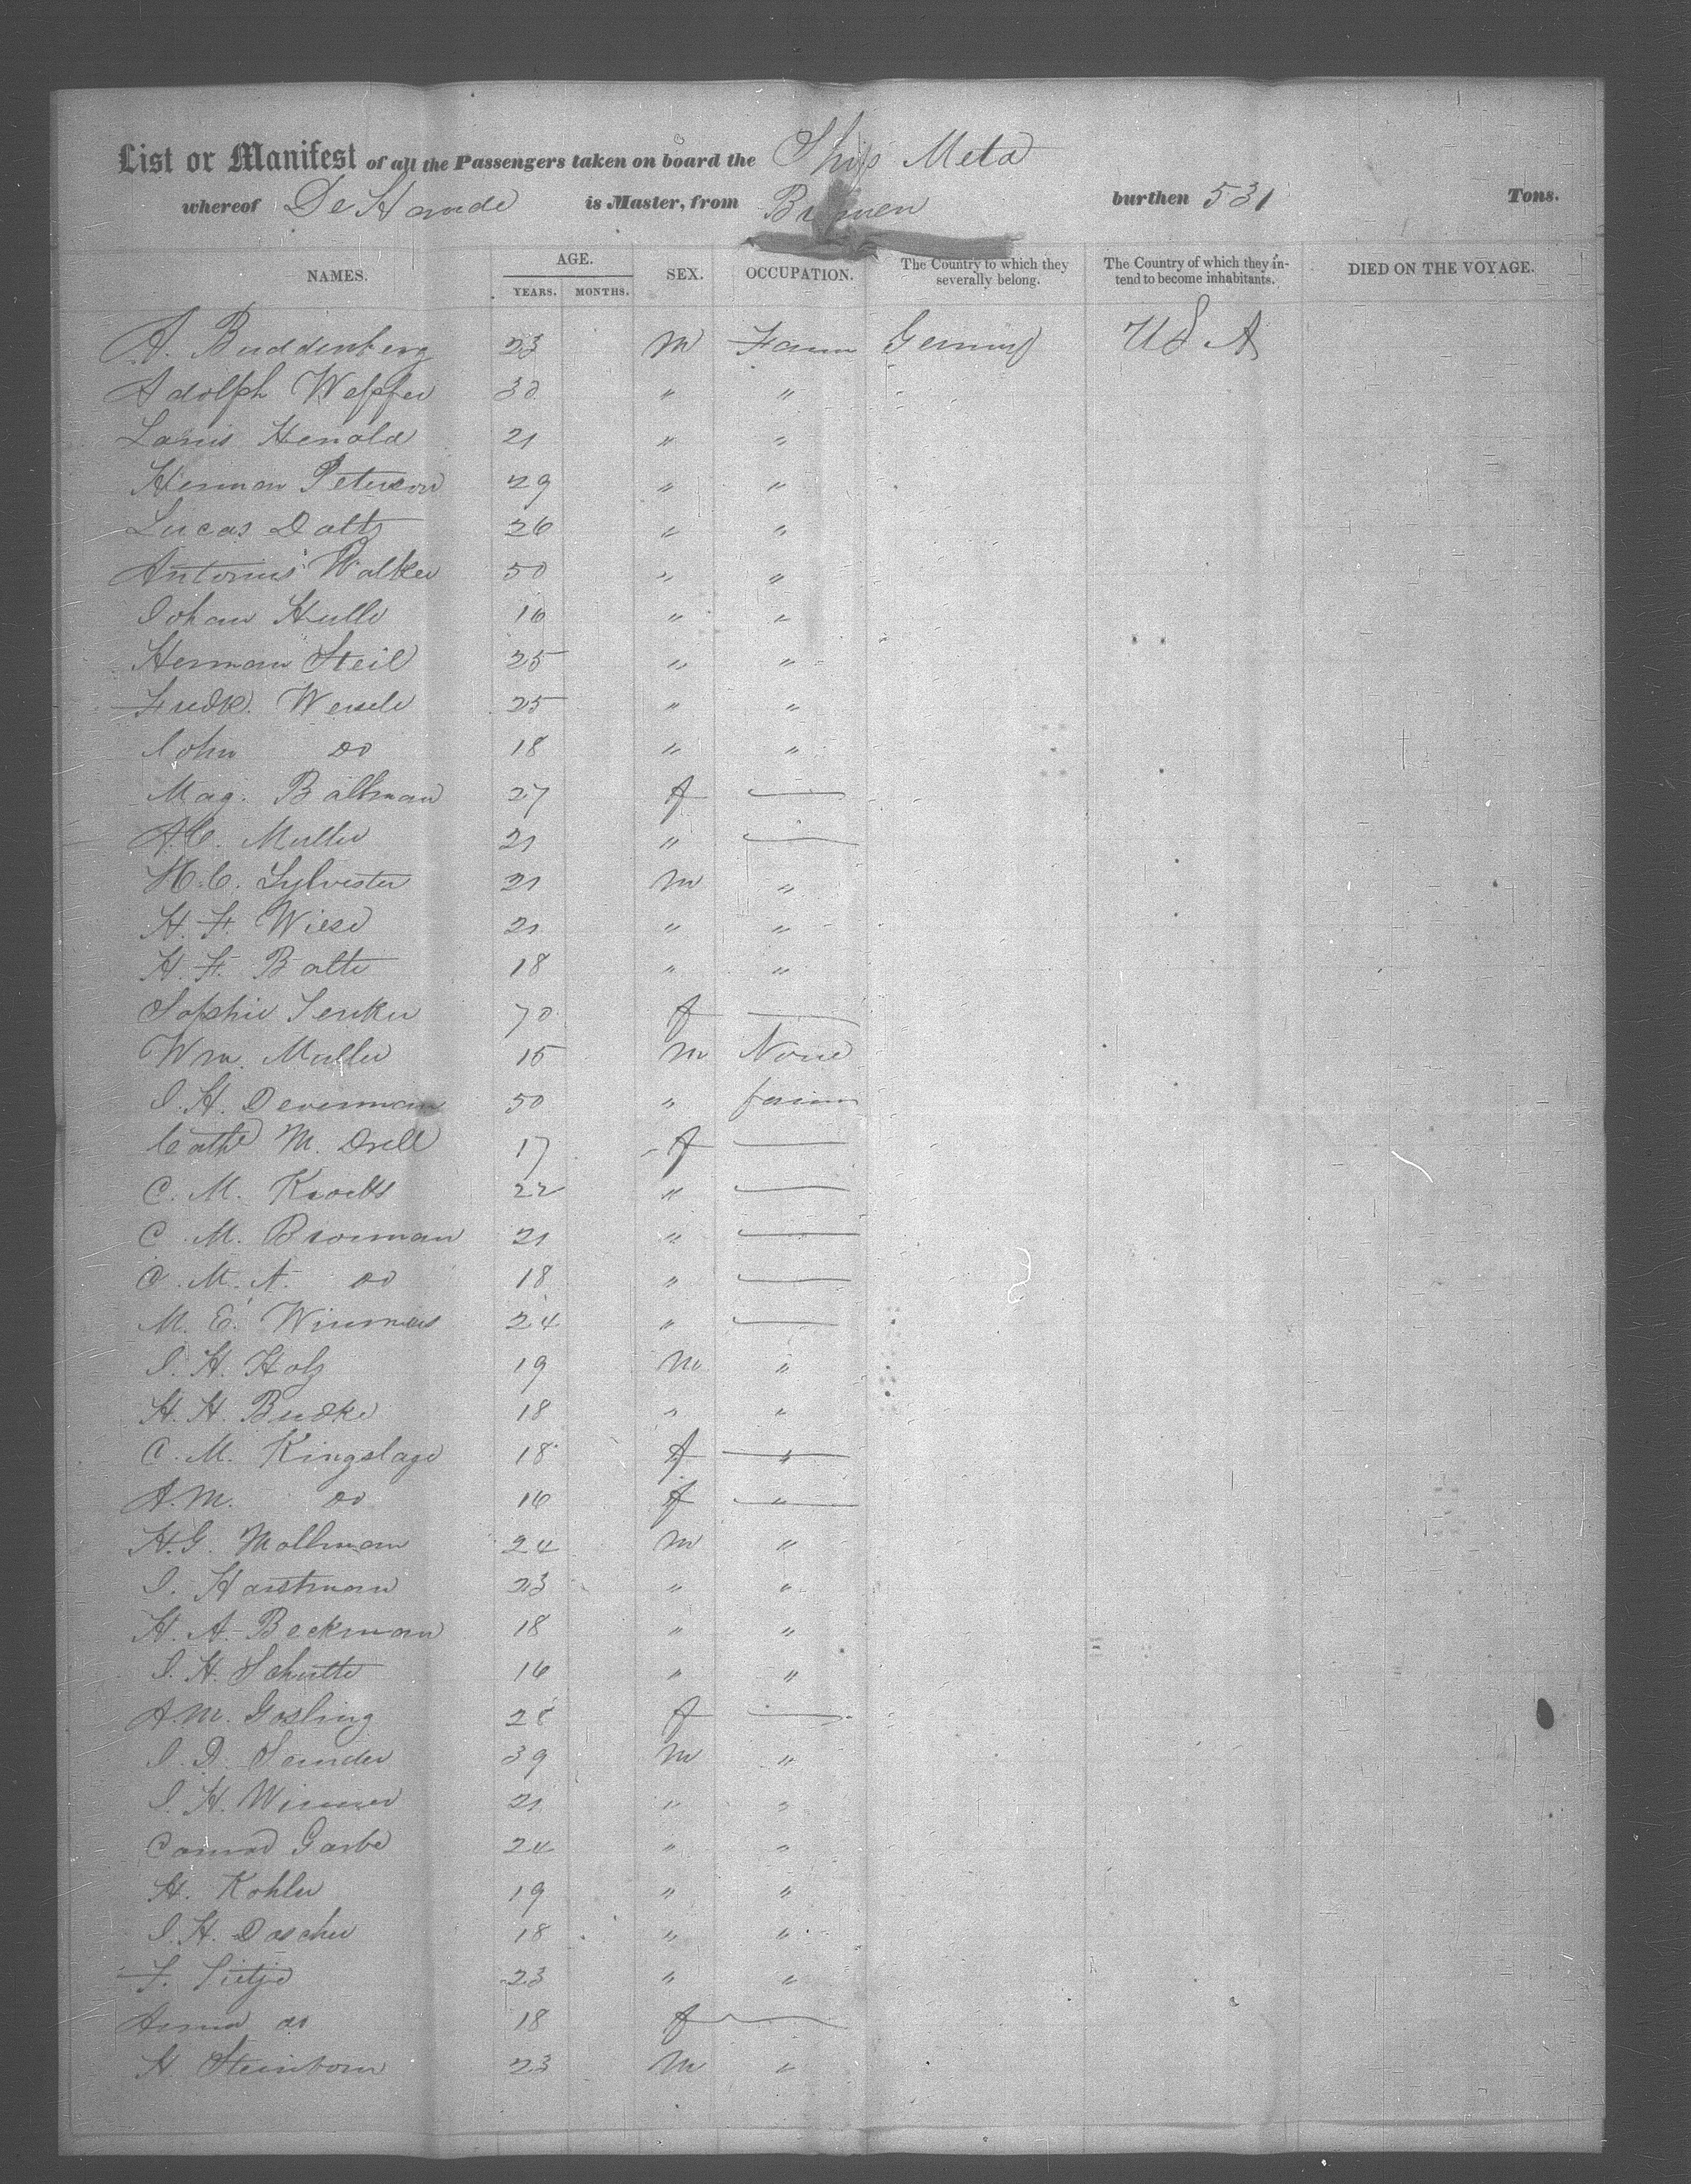 List or Manifest of all the Passengers taken on board the Ship Meta
whereof De Harde is Master, from Bremen burthen 531 Tons.
NAMES. AGE. YEARS. MONTHS. SEX. OCCUPATION. The Country to which they severally belong. The Country of which they intend to become inhabitants. DIED ON THE VOYAGE.
A. Buddenberg 23 m Farm Germany U S A
Adolph 30 " "
Louis Henold 21 " "
Herman Peterson 29 " "
Lucas Daltz 26 " "
Antonius Walker 50 " "
Johan Hulle 16 " "
Herman Steil 25 " "
Fredk. Wessele 25 " "
John do 18 " "
Mag. Baltman 27 f —
A.C. Muller 21 " —
H.C. Sylvester 21 m "
H. F. Wiese 21 " "
H. F. Balte 18 " "
Sophie 70 f —
Wm. Muller 15 m None
J. H. Deverman 50 " farm
Cathe M. Drell 17 f —
C. M. 22 " —
C. M. Broxman 21 " —
C. M. A. do 18 " —
M. E. 24 " —
J. H. Holz 19 m "
H. H. Budke 18 " "
C. M. Kingslage 18 f "
A.M. do 16 f "
H.G. Mollman 24 m "
J. Hartman 23 " "
H. A. Beckman 18 " "
J. H. Schutte 16 " "
A.M. Gosling 28 f —
J. D. Sander 39 m "
J. H. 21 " "
Conrad Garbe 24 " "
H. Kohler 19 " "
J. H. Doscher 18 " "
F. Tietje 23 " "
Anna do 18 f —
H. Steinborn 23 m "